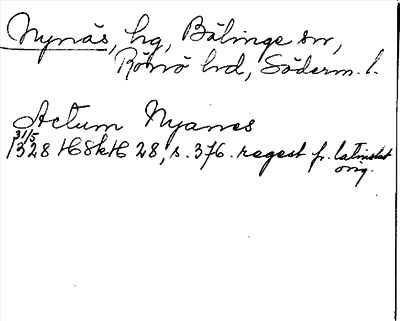 Nynäs, hg, Bälinge sn,
Rönö hd, Söderm. l.
Actum Nyanæs
31/5
1328 HSkH 28, s. 376. regest fr. latinskt
orig.